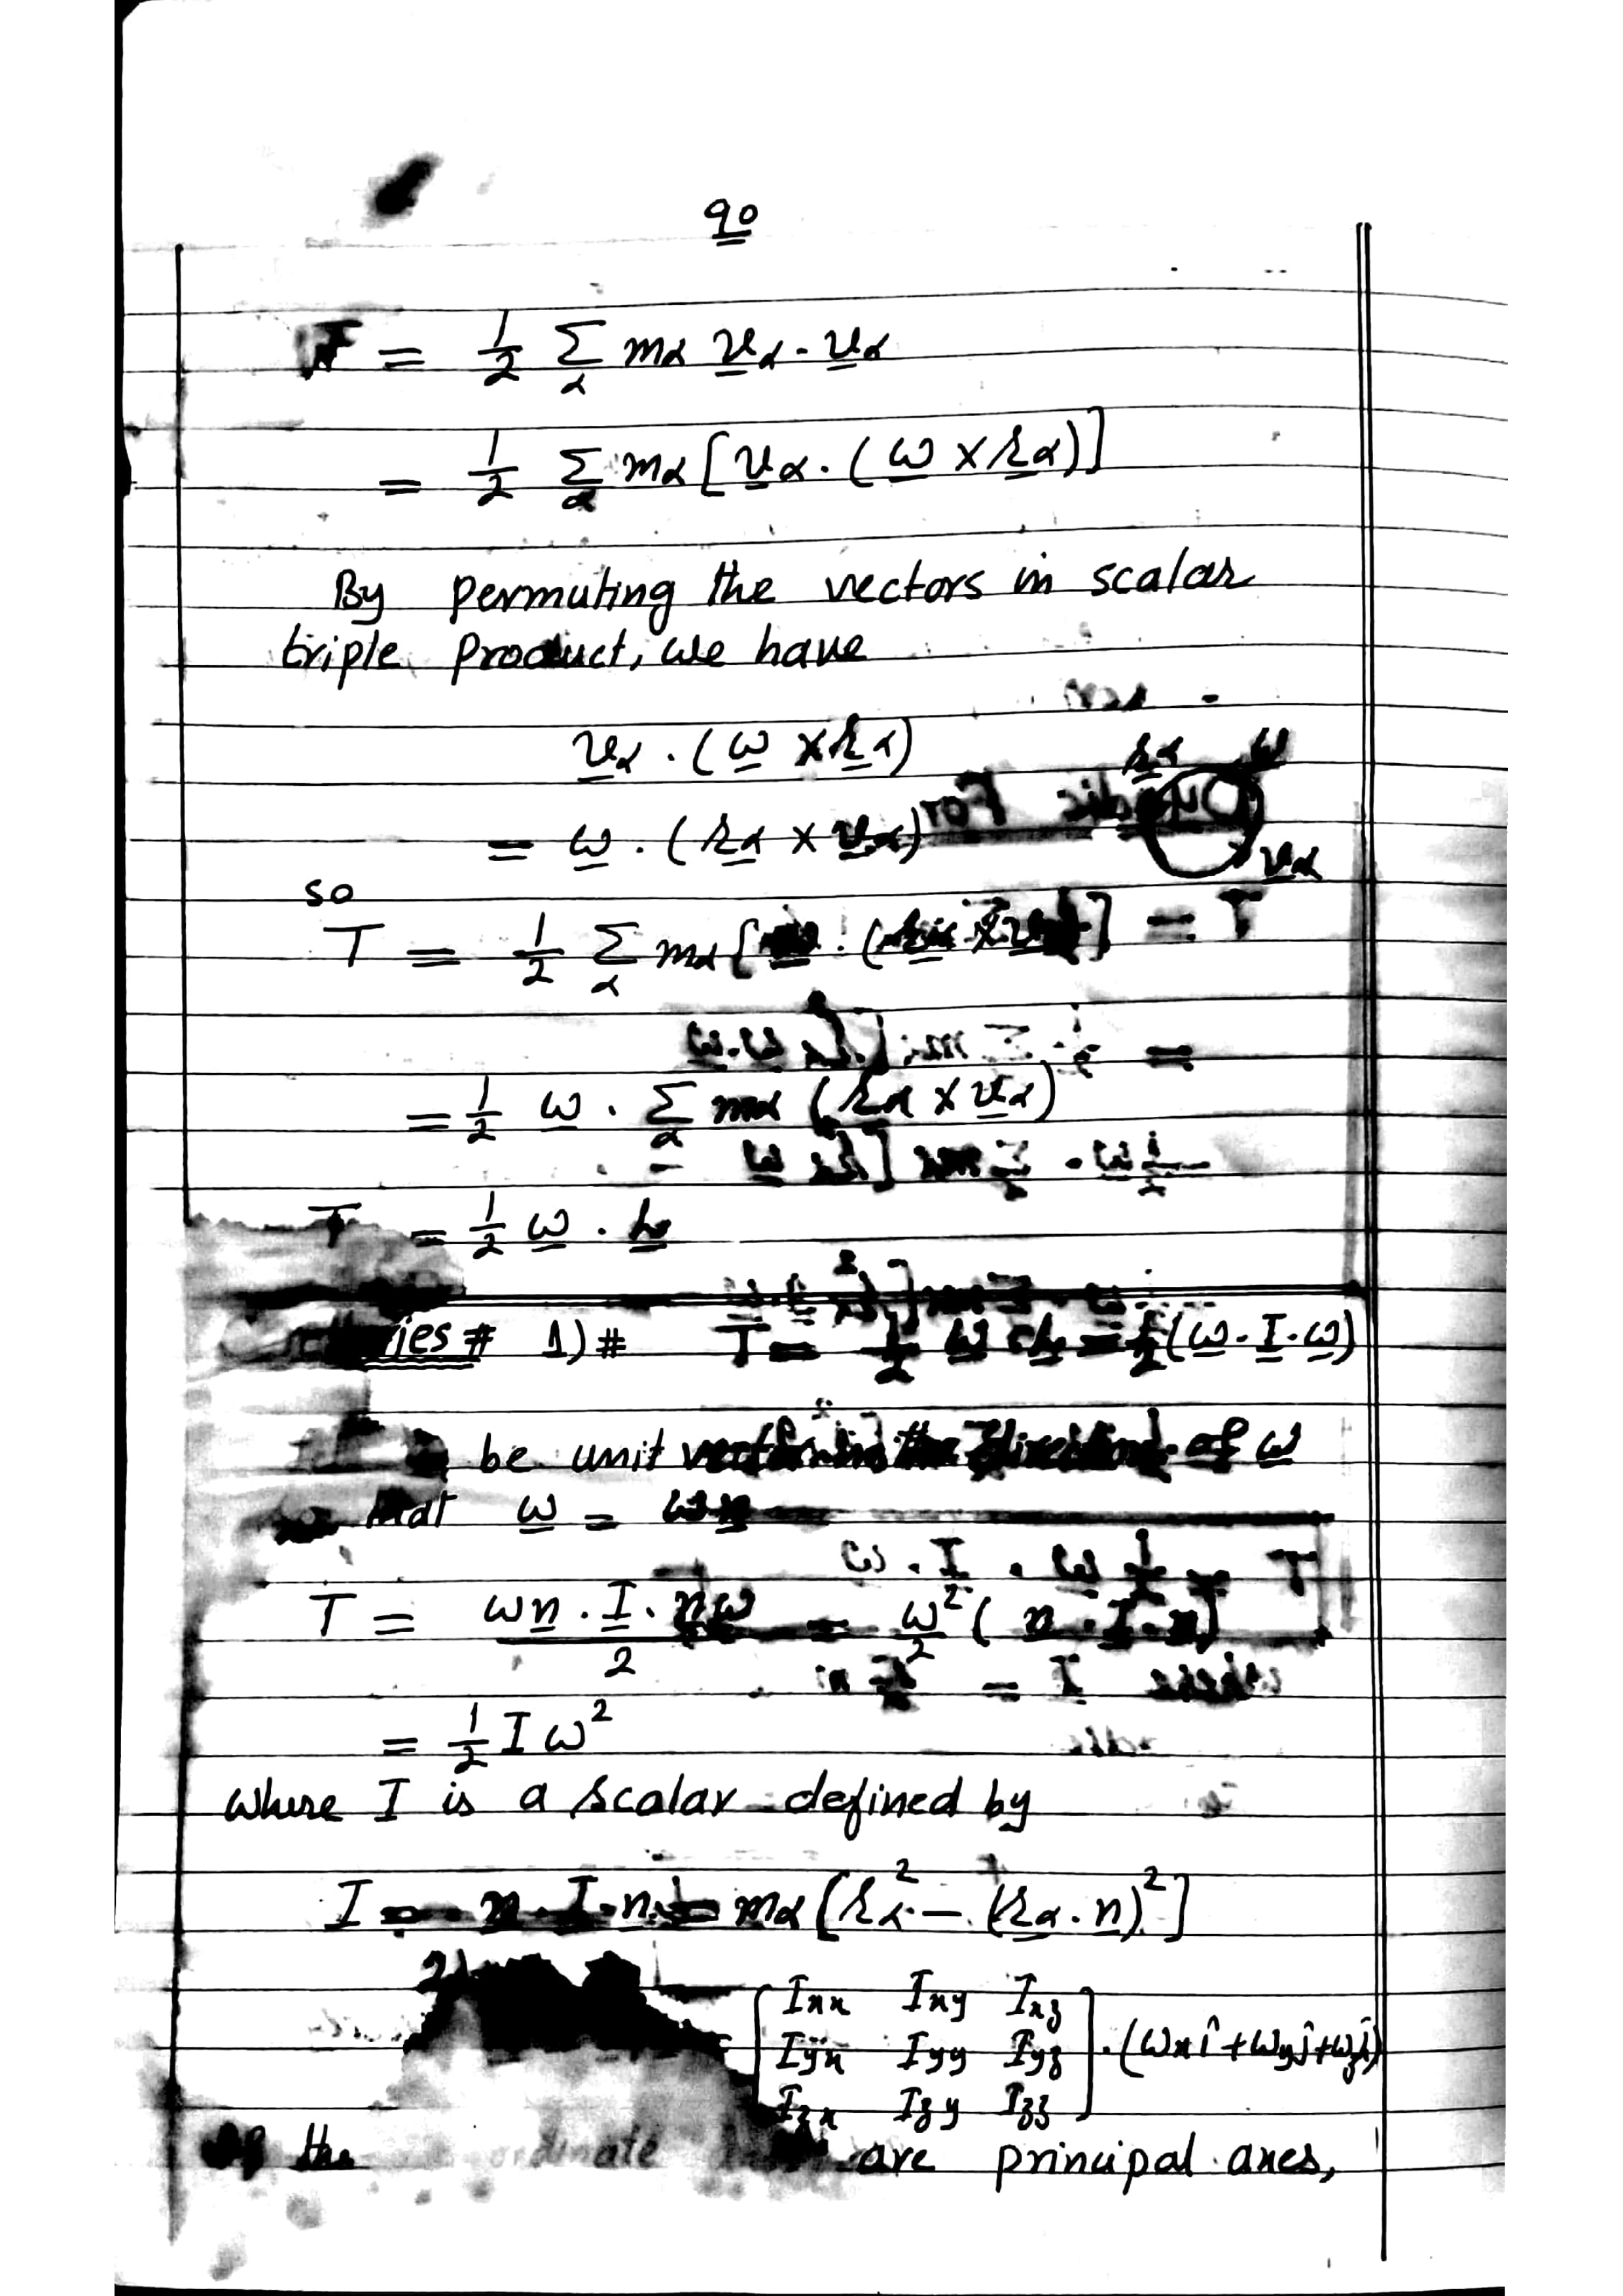 90
T = 1/2 Σ_α m_α v_α . v_α
= 1/2 Σ_α m_α [v_α . (ω × r_α)]
By permuting the vectors in scalar
triple product, we have
v_α . (ω × r_α)
r_α ω
= ω . (r_α × v_α)
v_α
so
T = 1/2 Σ_α m_α [ω . (r_α × v_α)]
= 1/2 ω . Σ_α m_α (r_α × v_α)
T = 1/2 ω . L
# 1) # T = 1/2 ω . L = 1/2 (ω . I . ω)
be unit vector in the direction of ω
that ω = ωn
T = ωn . I . nω / 2 = ω²/2 (n . I . n)
= 1/2 I ω²
where I is a scalar defined by
I = n . I . n = m_α [r_α² − (r_α . n)²]
2)
[Ixx Ixy Ixz
Iyx Iyy Iyz
Izx Izy Izz] . (ωx î + ωy ĵ + ωz k̂)
If the are principal axes,